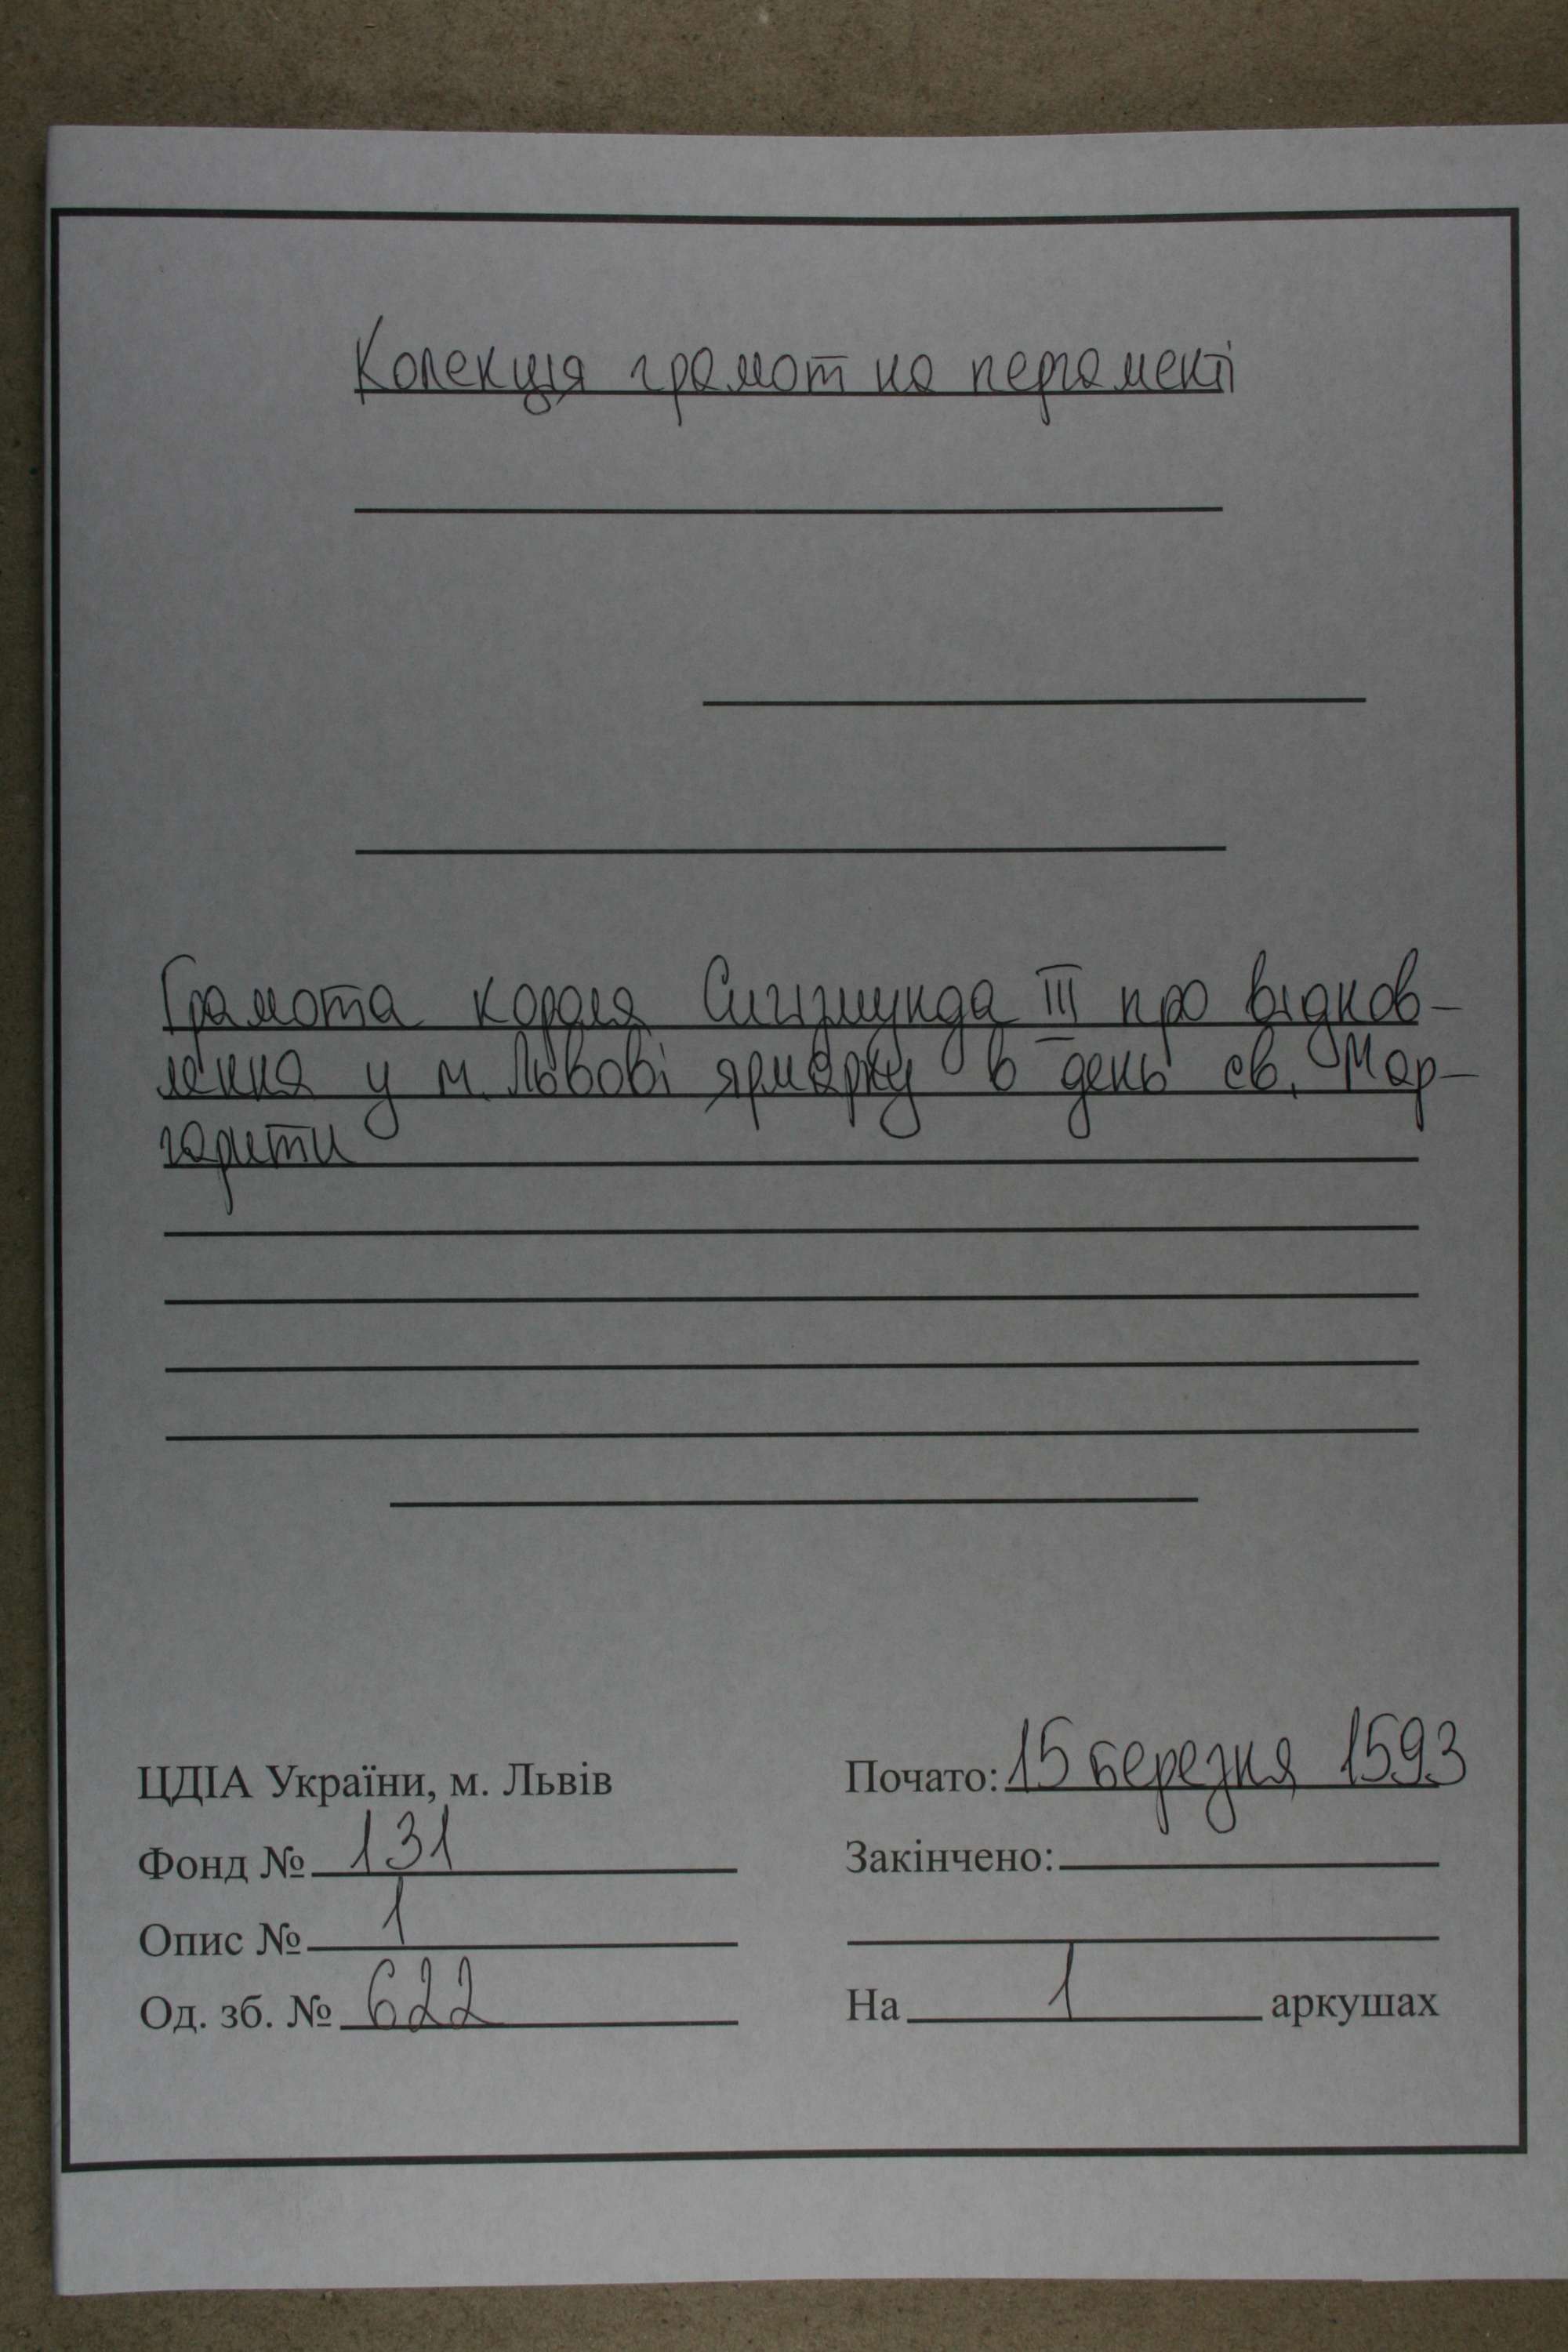 Колекція грамот на пергаменті
Грамота короля Сигізмунда III про віднов-
лення у м. Львові ярмарку в день св. Мар-
гарити
ЦДІА України, м. Львів
Фонд № 131
Опис № 1
Од. зб. № 622
Почато: 15 березня 1593
Закінчено:
На 1 аркушах